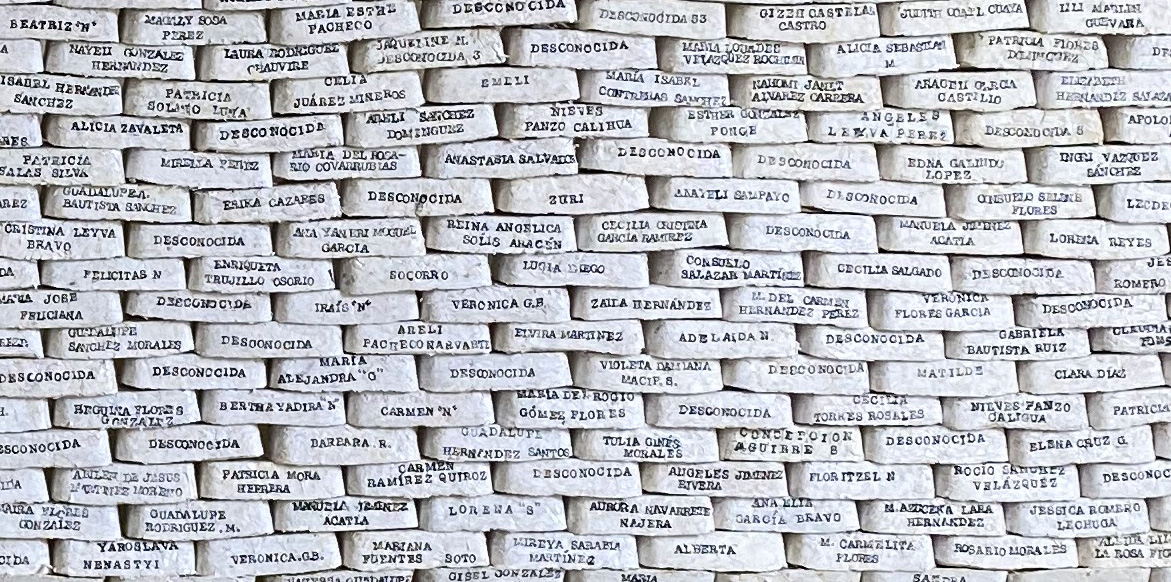 BEATRIZ "N"
MAGALY SOSA
PEREZ
MARIA ESTHE
PACHECO
DESCONOCIDA
DESCONOCIDA 53
GIZEH CASTELAS
CASTRO
JUDITH
LILI MARLIN
GUEVARA
NAYELI GONZALEZ
HERNANDEZ
LAURA RODRIGUEZ
CHAUVIRE
JAQUELINE M.
DESCONOCIDA 3
DESCONOCIDA
MARIA LOURDES
VELAZQUEZ
ALICIA SEBASTIAN
M
PATRICIA FLORES
DOMINGUEZ
ISABEL HERNANDEZ
SANCHEZ
PATRICIA
CELIA
JUÁREZ MINEROS
EMELI
MARÍA ISABEL
CONTRERAS SANCHEZ
NAHOMI JANET
ALVAREZ CARRERA
ARACELI GARCIA
CASTILLO
ELIZABETH
ALICIA ZAVALETA
DESCONOCIDA
ARELI SANCHEZ
DOMINGUEZ
NIEVES
PANZO CALIHUA
ESTHER GONZALEZ
PONCE
ANGELES
LEYVA PEREZ
DESCONOCIDA 8
PATRICIA
SALAS SILVA
MIRELLA PEREZ
MARIA DEL ROSA-
RIO COVARRUBIAS
ANASTASIA SALVADOR
DESCONOCIDA
DESCONOCIDA
EDNA GALINDO
LOPEZ
INGRI VAZQUEZ
SÁNCHEZ
GUADALUPE A.
BAUTISTA SANCHEZ
ERIKA CAZARES
DESCONOCIDA
ZURI
ANAYELI SAMPAYO
DESCONOCIDA
CONSUELO
FLORES
CRISTINA LEYVA
BRAVO
DESCONOCIDA
ANA YANERI MIGUEL
GARCIA
REINA ANGELICA
SOLÍS ARACÉN
CECILIA CRISTINA
GARCÍA RAMIREZ
DESCONOCIDA
MANUELA JIMINEZ
ACATLA
LORENA REYES
FELICITAS N
ENRIQUETA
TRUJILLO OSORIO
SOCORRO
LUCIA DIEGO
CONSUELO
SALAZAR MARTÍNEZ
CECILIA SALGADO
DESCONOCIDA
ROMERO
MARIA JOSE
FELICIANA
DESCONOCIDA
IRAÍS "N"
VERONICA G.B.
ZAIDA HERNÁNDEZ
M. DEL CARMEN
HERNANDEZ PEREZ
VERONICA
FLORES GARCIA
DESCONOCIDA
GUADALUPE
SANCHEZ MORALES
DESCONOCIDA
ARELI
PACHECO NARVART
ELVIRA MARTINEZ
ADELAIDA N
DESCONOCIDA
GABRIELA
BAUTISTA RUIZ
DESCONOCIDA
DESCONOCIDA
MARIA
ALEJANDRA "O"
DESCONOCIDA
VIOLETA DAMIANA
MACIP. S.
DESCONOCIDA
MATILDE
CLARA DÍAZ
REGULSA FLORES
GONZALEZ
BERTHA YADIRA N
CARMEN "N"
MARIA DEL ROCIO
GÓMEZ FLORES
DESCONOCIDA
CECILIA
TORRES ROSALES
NIEVES PANZO
CALIGUA
PATRIC
DESCONOCIDA
DESCONOCIDA
BARBARA. R.
GUADALUPE
HERNÁNDEZ SANTOS
TULIA GINÉS
MORALES
CONCEPCION
AGUIRRE S
DESCONOCIDA
ELENA CRUZ G.
ARLEN DE JESUS
MARTINEZ MORENO
PATRICIA MORA
HERRERA
CARMEN
RAMÍREZ QUIROZ
DESCONOCIDA
ANGELES JIMINEZ
RIVERA
FLORITZEL N
ROCIO SANCHEZ
VELÁZQUEZ
FLORES
GONZALEZ
GUADALUPE
RODRIGUEZ. M.
MANUELA JIMINEZ
ACATLA
LORENA "S"
AURORA NAVARRETE
NAJERA
ANA ELIA
GARCÍA BRAVO
M. AZUCENA LARA
HERNÁNDEZ
JESSICA ROMERO
LECHUGA
YAROSLAVA
NENASTYI
VERONICA.G.B.
MARIANA
FUENTES SOTO
MIREYA SARABIA
MARTÍNEZ
ALBERTA
M. CARMELITA
FLORES
ROSARIO MORALES
GISEL GONZALEZ
MARIA
SANDRA